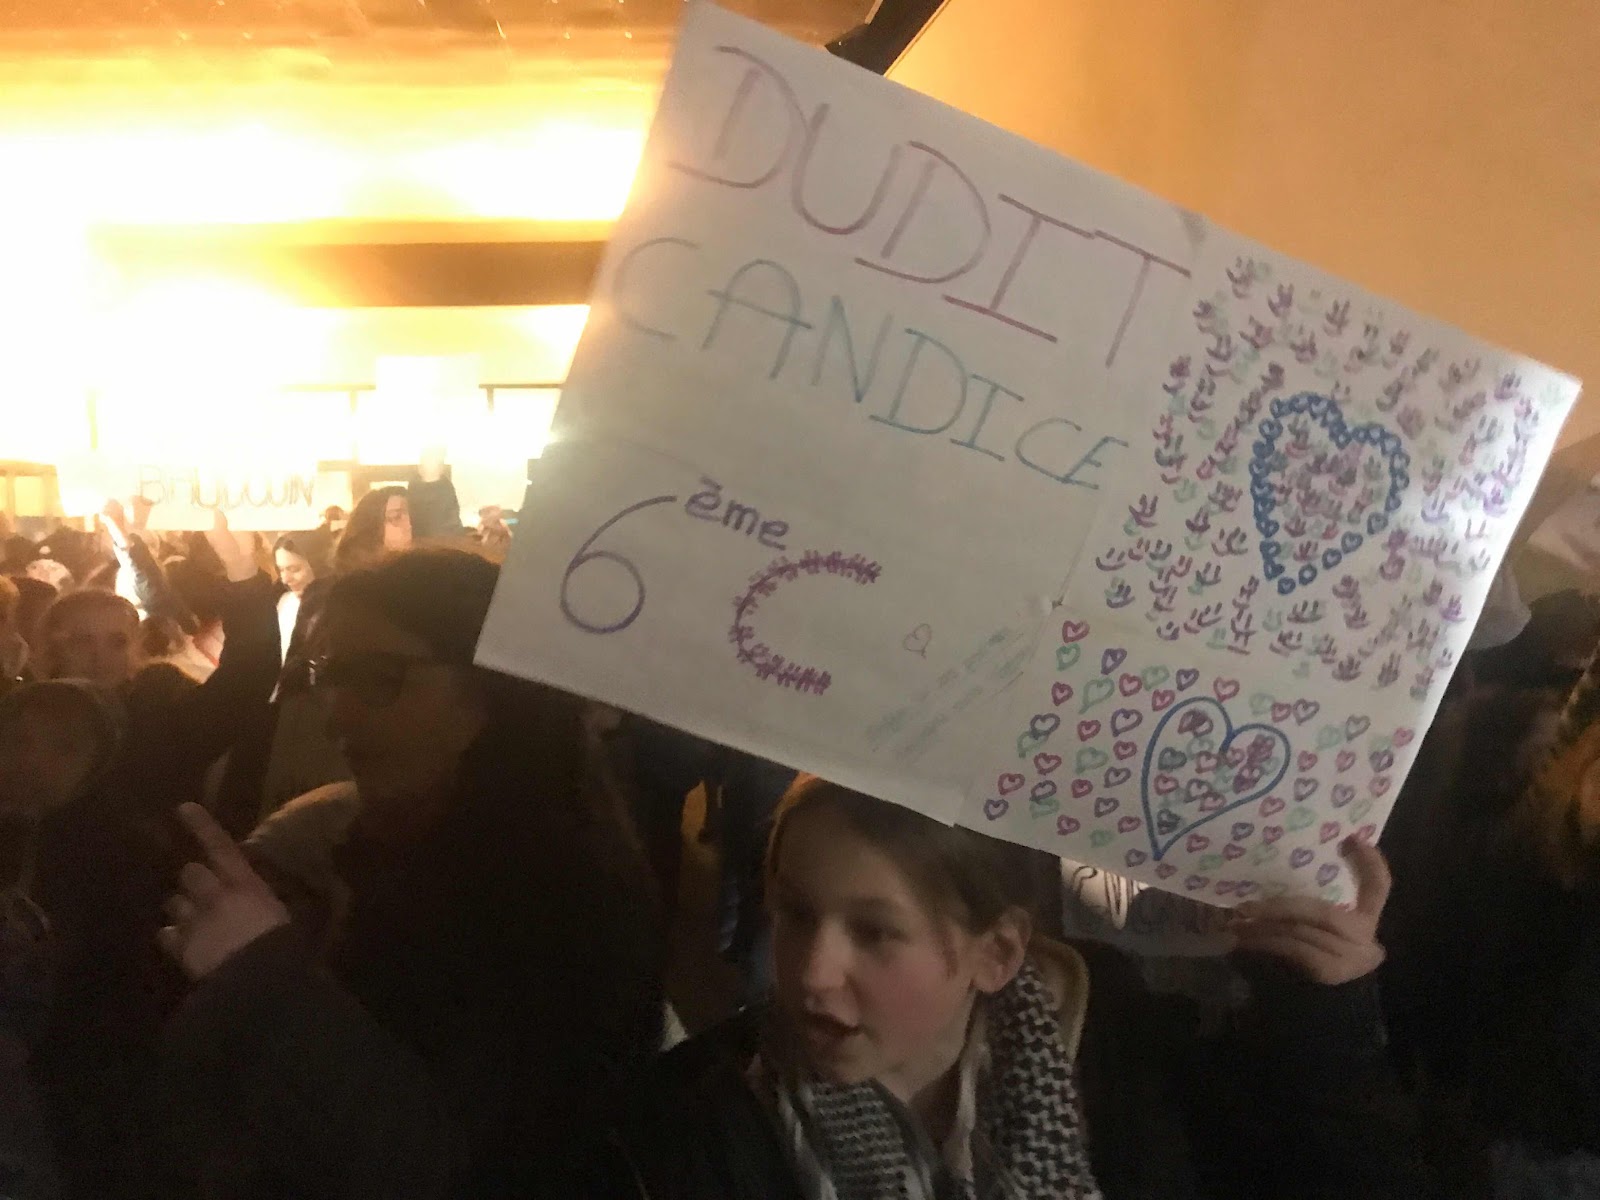 DUDIT
CANDICE
6ème C
BAUDOUIN